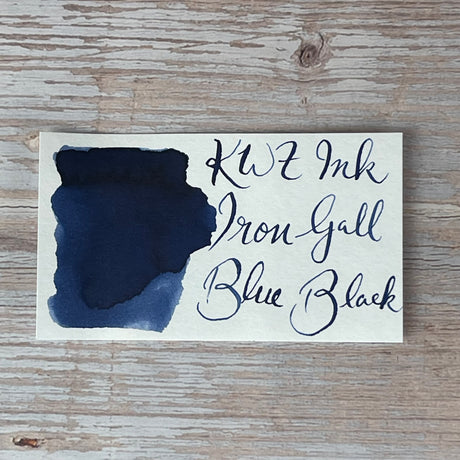 KWZ Ink
Iron Gall
Blue Black